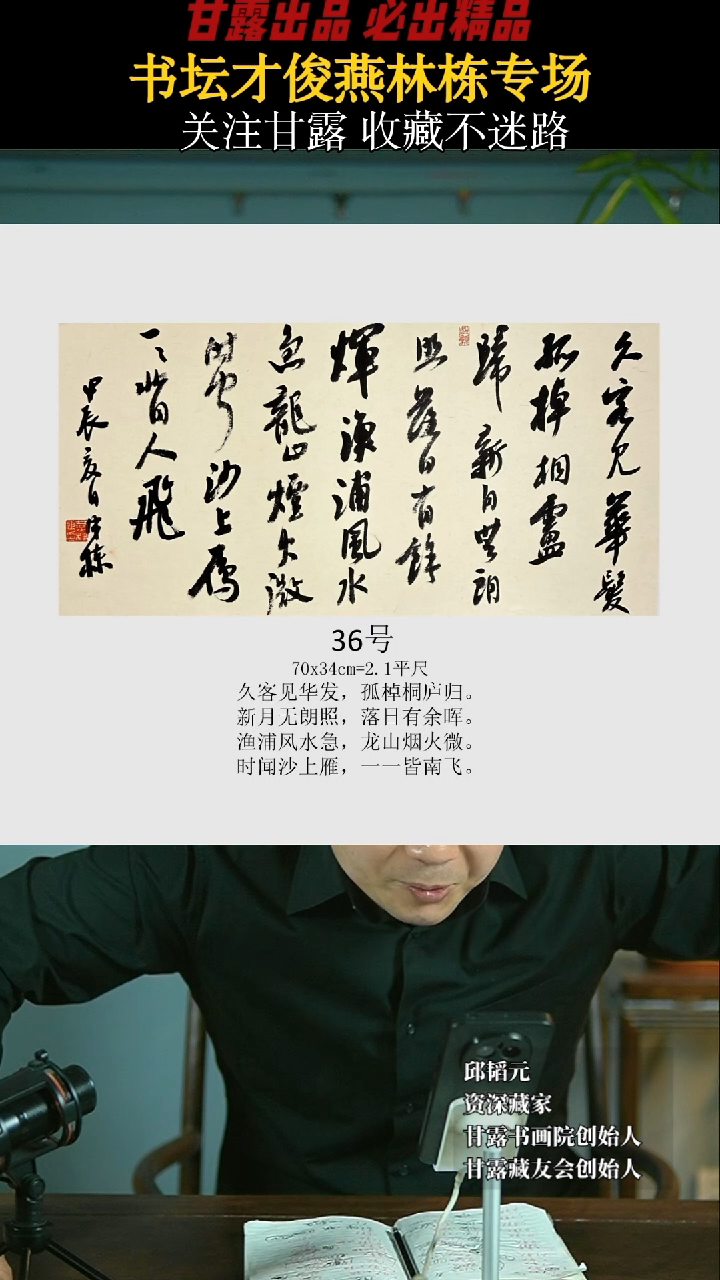 甘露出品 必出精品
书坛才俊燕林栋专场
关注甘露 收藏不迷路
久客見華髮
孤棹桐廬
歸新月無朗
照落日有餘
煇漁浦風水
急龍山煙火微
時聞沙上雁
一〻皆人飛
甲辰夏日
36号
70x34cm=2.1平尺
久客见华发，孤棹桐庐归。
新月无朗照，落日有余晖。
渔浦风水急，龙山烟火微。
时闻沙上雁，一一皆南飞。
邱韬元
资深藏家
甘露书画院创始人
甘露藏友会创始人